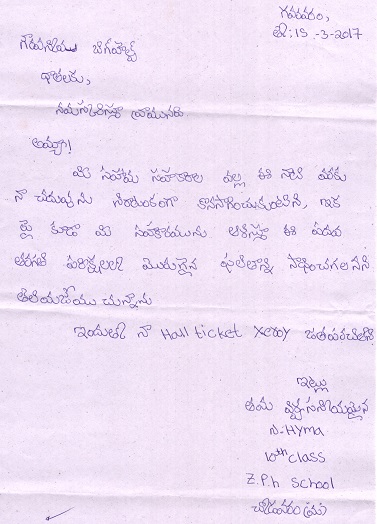 గవరవరం,
తే: 15 -3-2017
గౌరవనీయ
దాతలకు,
నమస్కరిస్తూ వ్రాయునది
అమ్మా!
మీ సహాయ సహకారాల వల్ల ఈ నాటి వరకు
నా చదువును నిరాటంకంగా కొనసాగించుకుంటిని, ఇక
పై కూడా మీ సహకారమును ఆశిస్తూ ఈ పదవ
తరగతి పరీక్షలలో మెరుగైన ఫలితాన్ని సాధించగలనని
తెలియజేయు చున్నాను
ఇందుతో నా Hall ticket Xerox జతపరచితిని
ఇట్లు
తమ విశ్వసనీయమైన
N. Hyma
10th class
Z.P.h School
చోడవరం (మ)